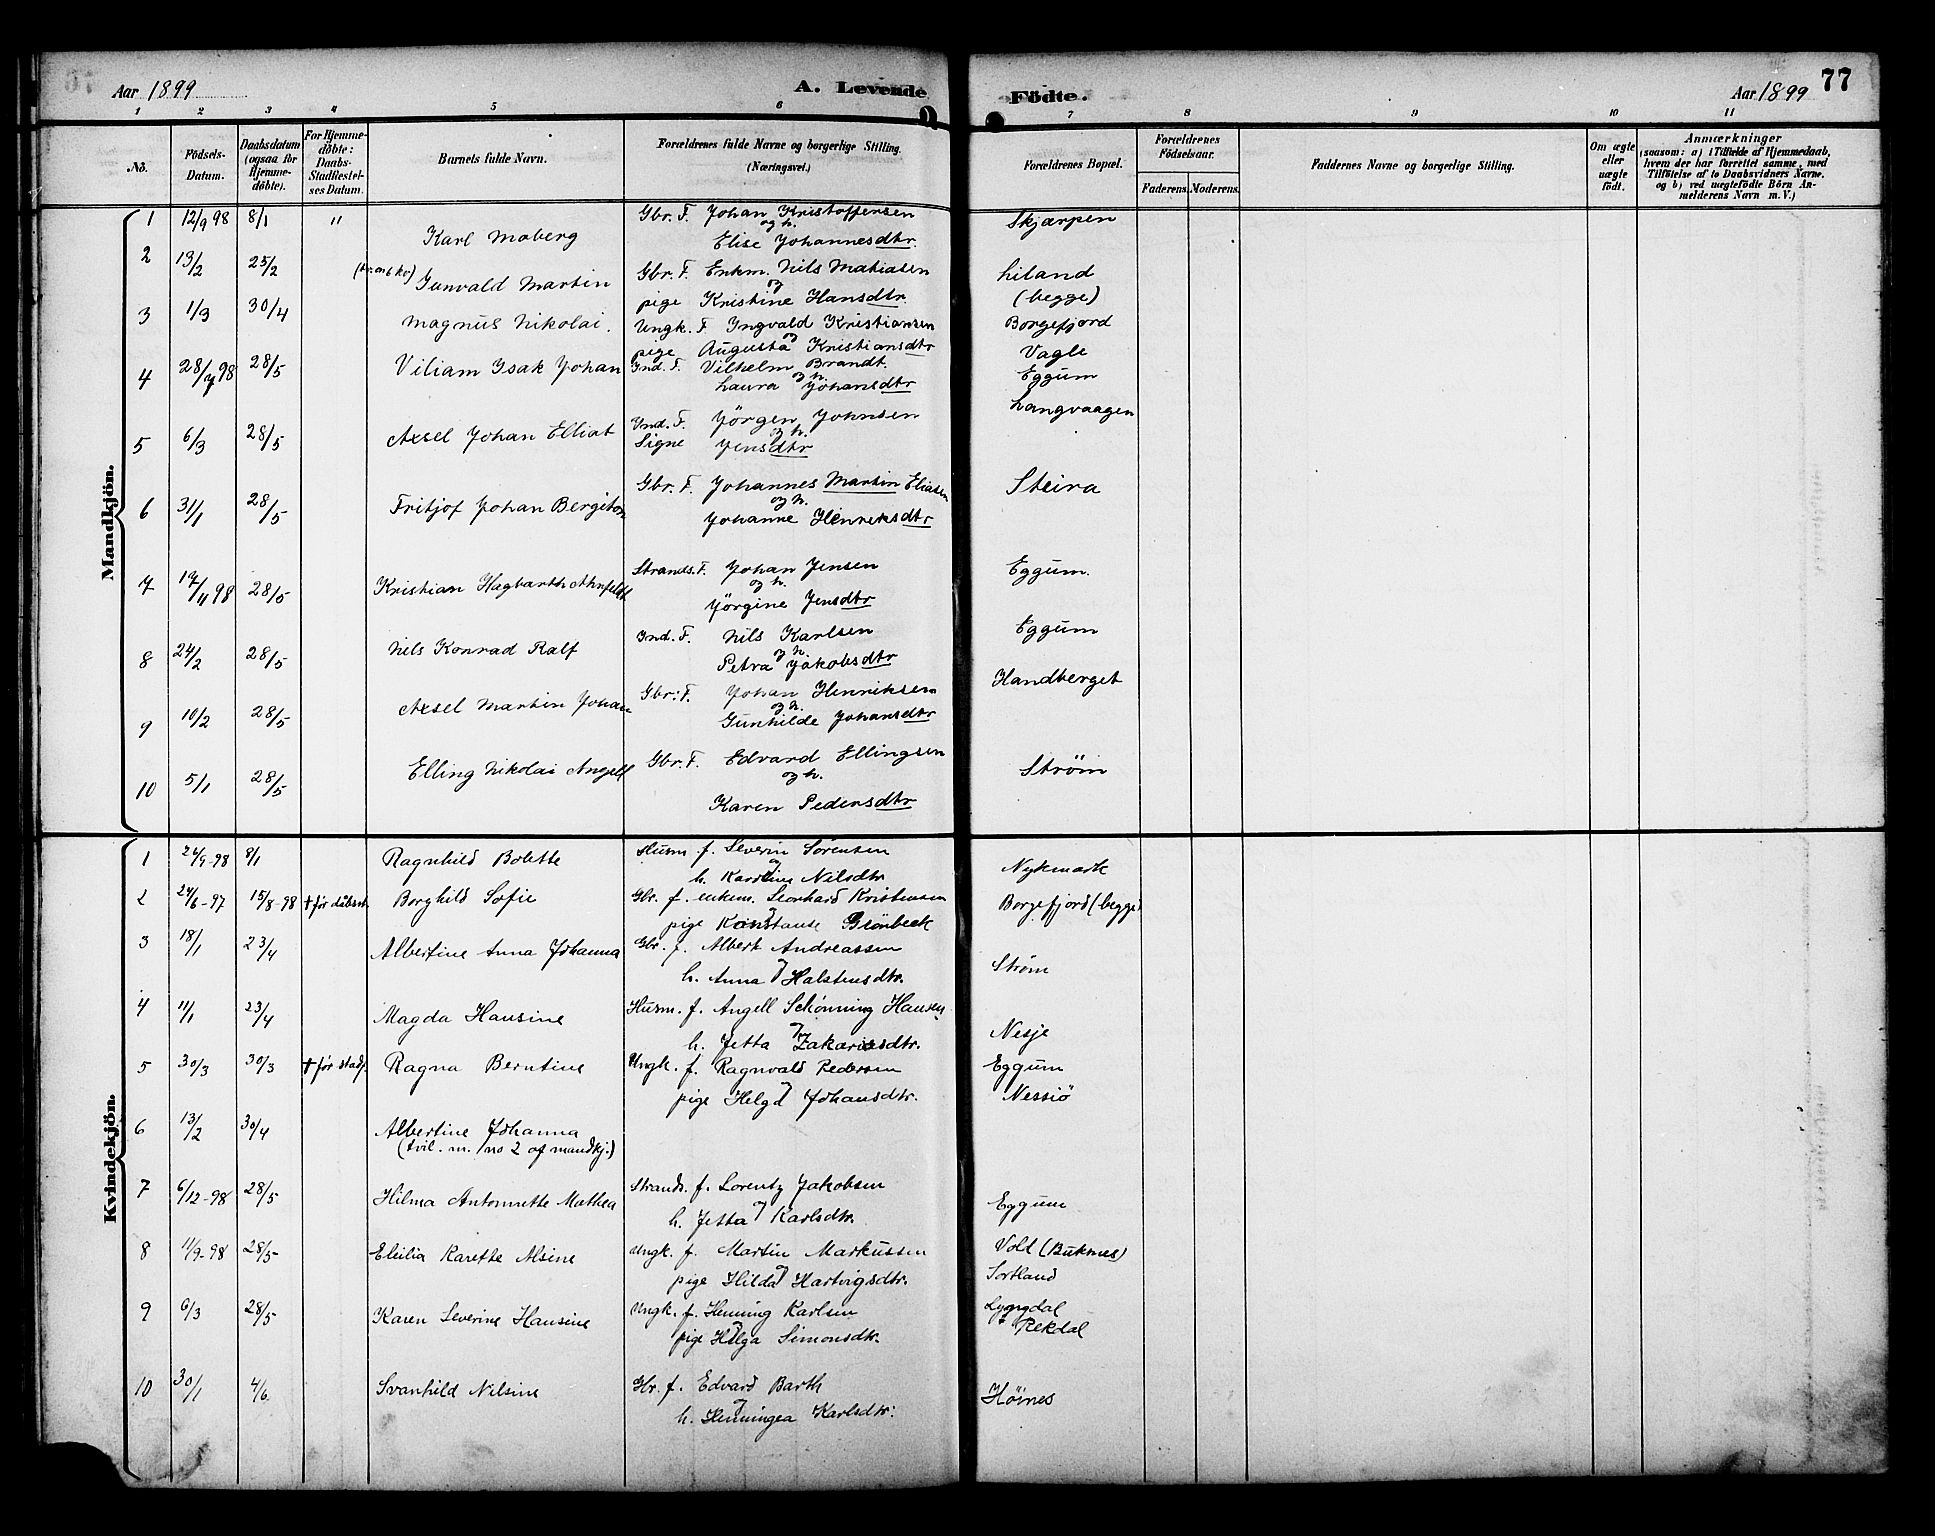 Aar 1899
A. Levende
Födte.
Aar 1899
77
1 2 3 4 5 6 7 8 9 10 11
No.
Födsels-Datum.
Daabsdatum (ogsaa for Hjemme-döbte).
For Hjemme-döbte: Daabs-Stadfæstel-ses Datum.
Barnets fulde Navn.
Forældrenes fulde Navne og borgerlige Stilling. (Næringsvei.)
Forældrenes Bopæl.
Forældrenes Födselsaar.
Faderens. Moderens.
Faddernes Navne og borgerlige Stilling.
Om ægte eller uægte födt.
Anmærkninger
(saasom: a) i Tilfælde af Hjemmedaab, hvem der har forrettet samme, med Tilföielse af to Daabsvidners Navne, og b) ved uegtefödte Börn Anmelderens Navn m. V.)
Mandkjön.
1 12/9 98 8/1 " Karl Moberg Gbr. F. Johan Kristoffersen Skjærpen
og h.
Elise Johannesdtr.
2 13/2 25/2 Gunvald Martin Gbr. F. Enkm. Nils Matiasen Liland
og
pige Kristine Hansdtr. (begge)
3 1/3 30/4 Magnus Nikolai. Ungk. F. Ingvald Kristiansen Borgefjord
og
pige Augusta Kristiansdtr Vagle
4 28/7 98 28/5 Viliam Isak Johan Ind. F. Vilhelm Brandt. Eggum
og h.
Laura Johansdtr
5 6/3 28/5 Axsel Johan Elliot Ind. F. Jörgen Johnsen Langvaagen
og h.
Signe Jensdtr
6 31/1 28/5 Fritjof Johan Bergiton Gbr. F. Johannes Martin Eliasen Steira
og h.
Johanne Henriksdtr
7 17/11 98 28/5 Kristian Hagbarth Ahnfeldt Strands. F. Johan Jensen Eggum.
og h.
Jörgine Jensdtr
8 24/2 28/5 Nils Konrad Ralf Ind. F. Nils Karlsen Eggum
og h.
Petra Jakobsdtr
9 10/2 28/5 Axsel Martin Johan Gbr. F. Johan Henriksen Handberget
og h.
Gunhilde Johansdtr
10 5/1 28/5 Elling Nikolai Angell Gbr. F. Edvard Ellingsen Ström
og h.
Karen Pedersdtr
Kvindekjön.
1 24/9-98 8/1 Ragnhild Bolette Husm. f. Severin Sörensen Nykmark
og
h. Karoline Nilsdtr
2 24/6-97 15/8-98 † før dåbsst. Borghild Sofie Gbr. f. enkem. Leonhard Kristensen Borgefjord (begge)
og
pige Konstanse Grönbeck
3 18/1 23/4 Albertine Anna Johanna Gbr. f. Albert Andreassen Strøm
og
h. Anna Halstensdtr.
4 11/1 23/4 Magda Hansine Husm. f. Angell Schønning Hansen Nesje
og
h. Jetta Zakariasdtr.
5 30/3 30/3 † før stadf. Ragna Berntine Ungk. f. Ragnvald Pedersen Eggum
og
pige Helga Johansdtr. Nessiö
6 13/2 30/4 Albertine Johanna
(tvil. m. no 2 af mandkj.)
7 6/12-98 28/5 Hilma Antonnette Mathea Strands. f. Lorentz Jakobsen Eggum
og
h. Jetta Karlsdtr.
8 11/9-98 28/5 Elilia Karette Alsine Ungk. f. Martin Markussen Vold (Buknes)
og
pige Hilda Hartvigsdtr. Sortland
9 6/3 28/5 Karen Severine Hansine Ungk. f. Henning Karlsen Lyngdal
og
pige Helga Simonsdtr. Rekdal
10 30/1 4/6 Svanhild Nilsine Gbr. f. Edvard Barth Höines
og
h. Henningea Karlsdtr.